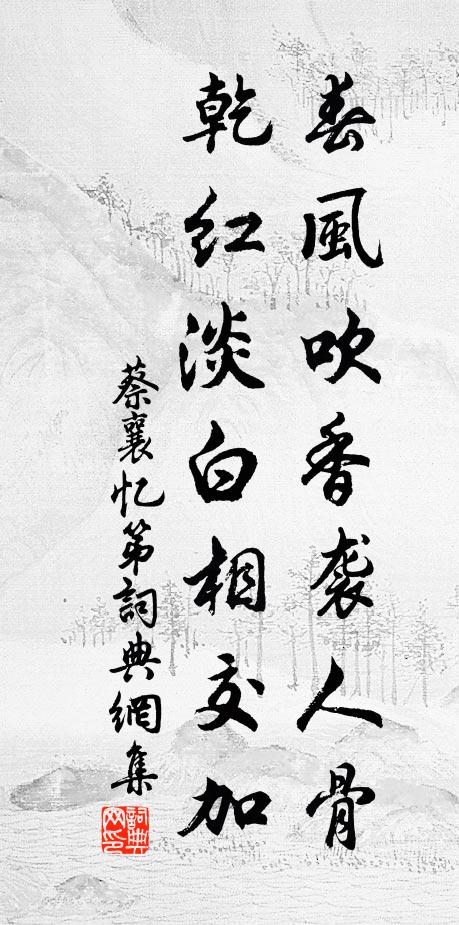 春風吹香袭人骨
乾红淡白相交加
蔡襄忆第詞典網集
詞典网印